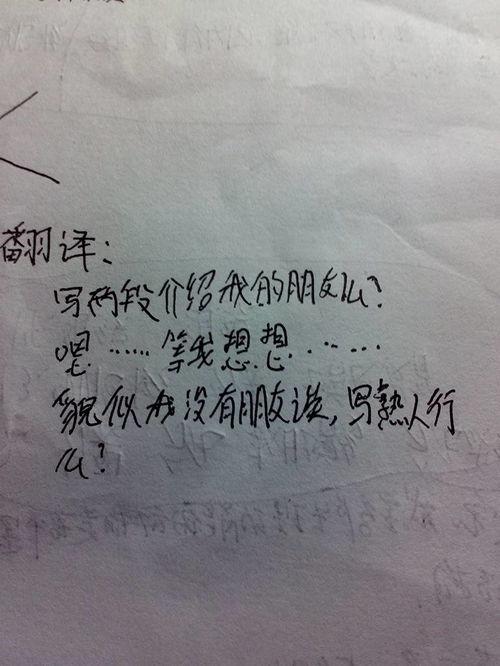 翻译：
写两段介绍我的朋友么？
嗯……等我想想……
貌似我没有朋友诶，写熟人行
么？